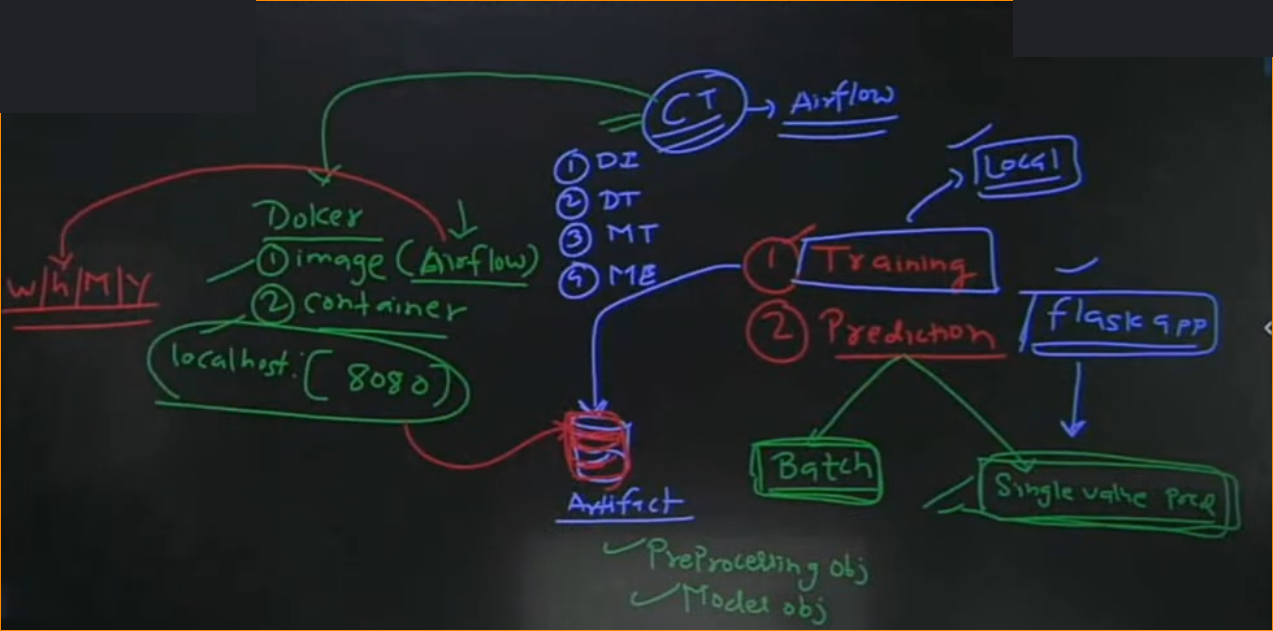 CT → Airflow
① DI
② DT
③ MT
④ ME
Local
Doker
① image (Airflow)
② container
localhost: [8080]
w|h|M|Y
① Training
② Prediction
flask app
Batch
Single value Pred
Artifact
✓ PreProcessing obj
✓ Model obj